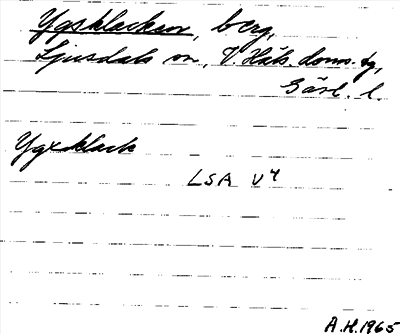 Ygsklacken, berg,
Ljusdals sn, V. Häls. doms. bg,
Gävl. l.
Ygxklack
LSA V4
A.H. 1965